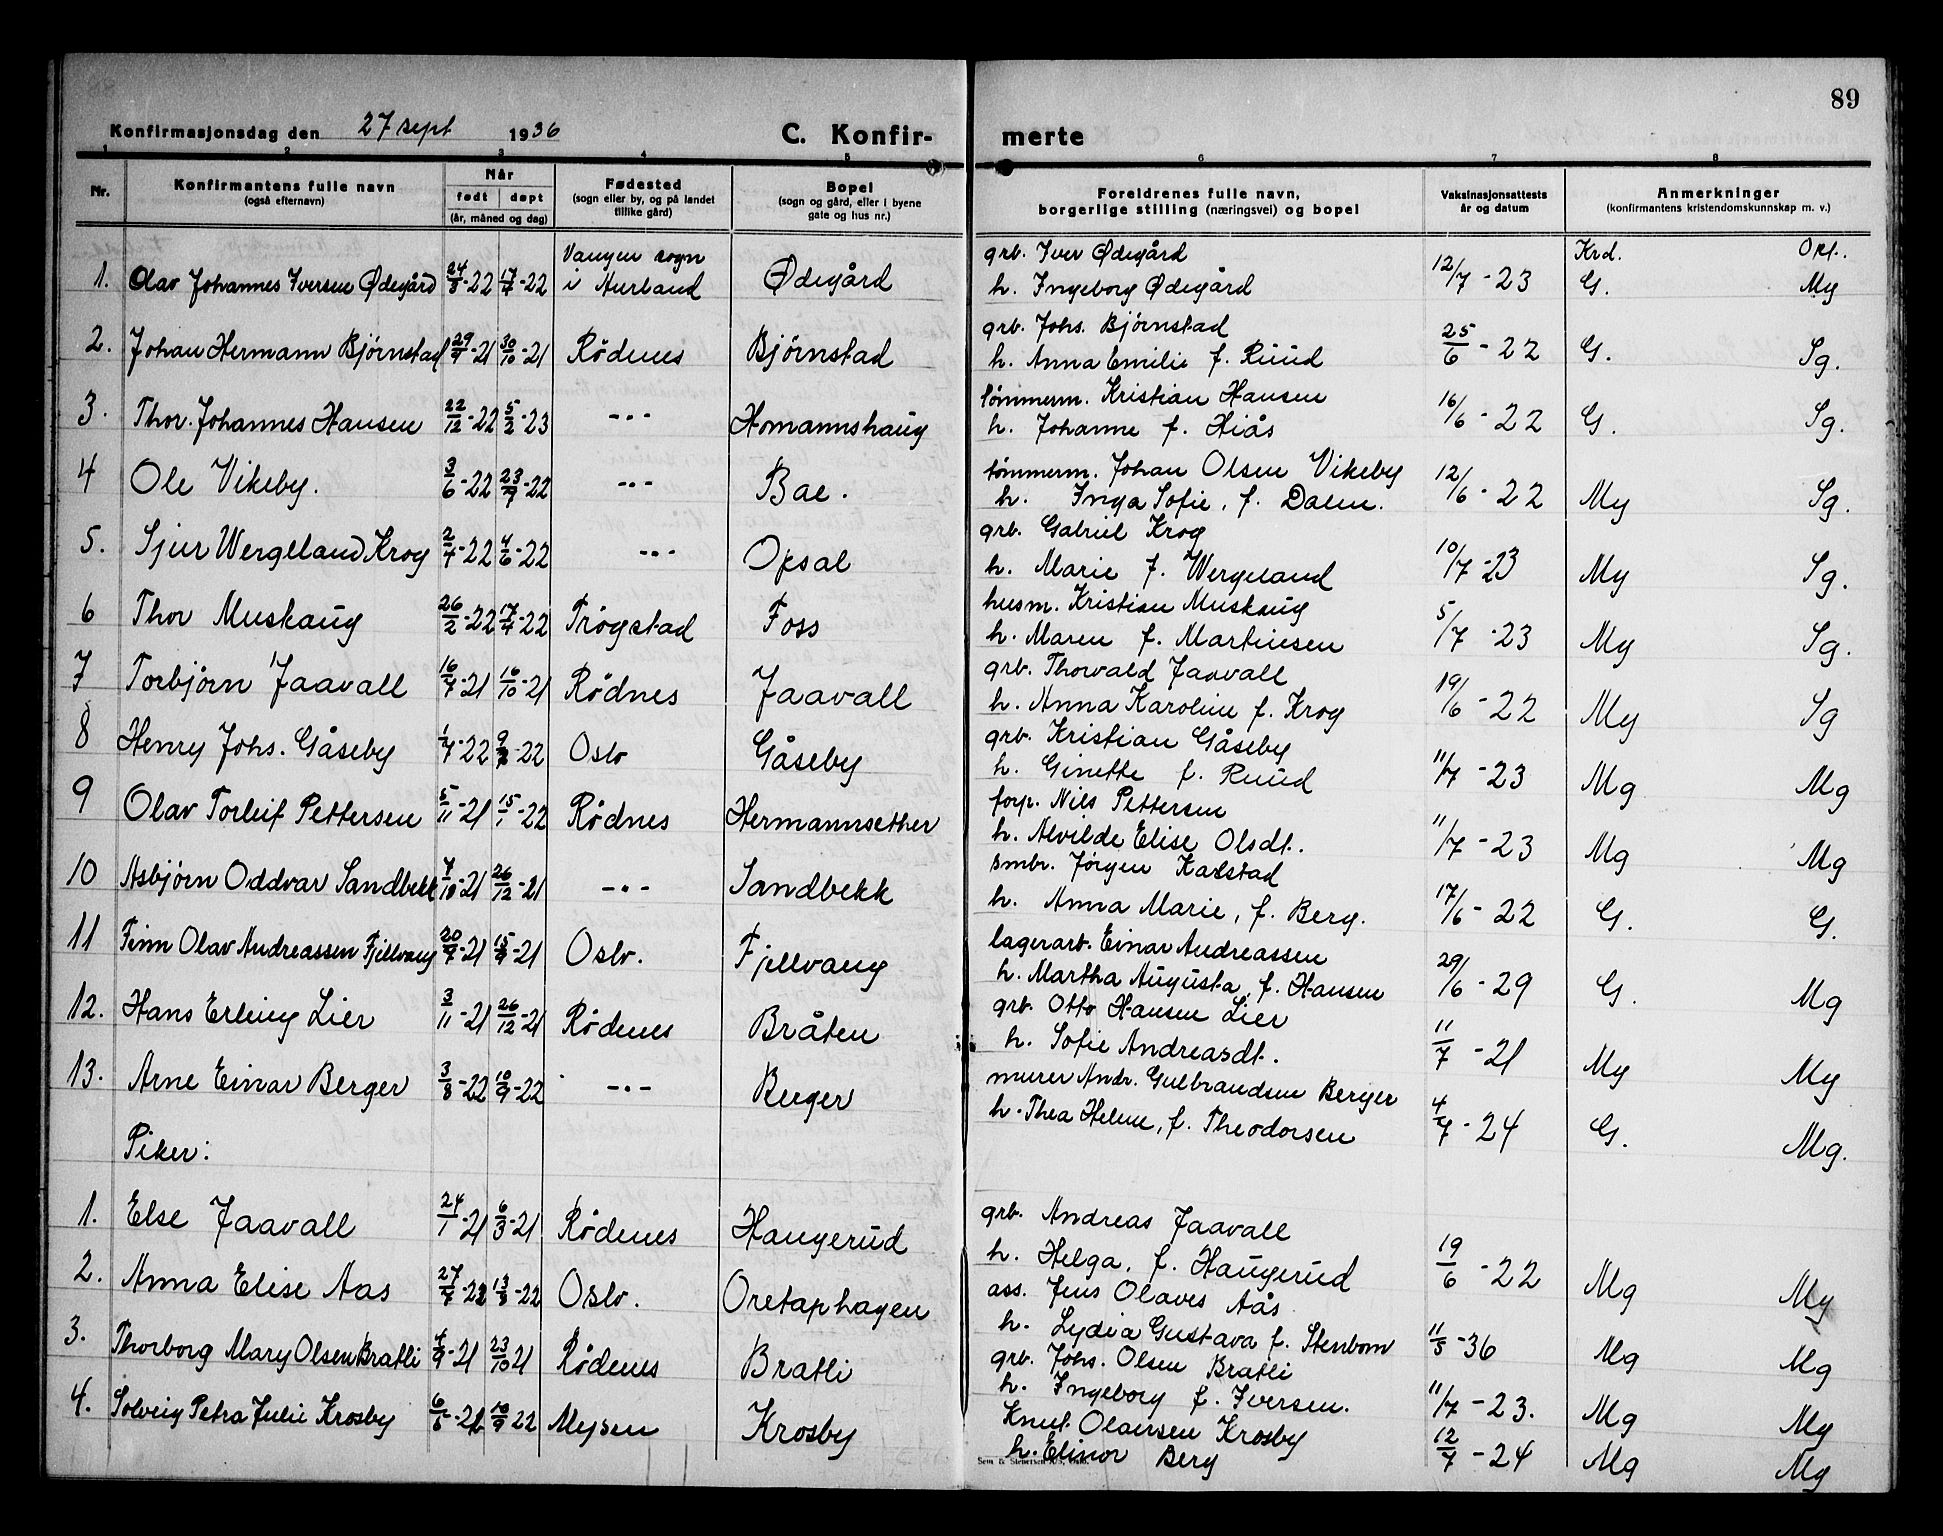 89
Konfirmasjonsdag den 27 sept 1936 C. Konfir- merte
1 2 3 4 5 6 7 8
Nr. Konfirmantens fulle navn (også efternavn) Når født døpt (år, måned og dag) Fødested (sogn eller by, og på landet tillike gård) Bopel (sogn og gård, eller i byene gate og hus nr.) Foreldrenes fulle navn, borgerlige stilling (næringsvei) og bopel Vaksinasjonsattests år og datum Anmerkninger (konfirmantens kristendomskunnskap m. v.)
Vangen sogn grb. Iver Ødegård Krd. Opf.
1. Olav Johannes Iversen Ødegård 24/3-22 17/4-22 i Aurland Ødegård h. Ingeborg Ødegård 12/7-23 G. Mg
grb. Johs. Bjørnstad
2. Johan Hermann Bjørnstad 29/9-21 30/10-21 Rødenes Bjørnstad h. Anna Emilie f. Ruud 25/6-22 G. Sg.
tømmerm. Kristian Hansen
3. Thor Johannes Hansen 22/12-22 5/2-23 -"- Homannshaug h. Johanne f. Hiås 16/6-22 G. Sg.
tømmerm. Johan Olsen Vikeby
4 Ole Vikeby. 3/6-22 23/7-22 -"- Bae. h. Inga Sofie, f. Dalen. 12/6-22 Mg Sg.
grb. Gabriel Krog
5. Sjur Wergeland Krog 2/4-22 4/6-22 -"- Opsal h. Marie f. Wergeland 10/7-23 Mg Sg.
husm. Kristian Muskaug
6 Thor Muskaug 26/2-22 17/4-22 Trøgstad Foss h. Maren f. Martinsen 5/7-23 Mg Sg.
grb. Thorvald Jaavall
7 Torbjørn Jaavall 16/7-21 16/10-21 Rødnes Jaavall h. Anna Karoline f. Krog 19/6-22 Mg Sg
grb. Kristian Gåseby
8 Henry Johs. Gåseby 1/4-22 -22 Oslo Gåseby h. Ginette f. Ruud 11/7-23 Mg Mg
forp. Nils Pettersen
9 Olav Torleif Pettersen 5/11-21 15/1-22 Rødnes Hermannsether h. Alvilde Elise Olsdt. 11/7-23 Mg Mg
smbr. Jørgen Karlstad
10 Asbjørn Oddvar Sandbekk 7/10-21 26/12-21 -"- Sandbekk h. Anna Marie, f. Berg. 17/6-22 G. G.
lagerarb. Einar Andreassen
11 Finn Olav Andreassen Fjellvang 20/7-21 15/9-21 Oslo. Fjellvang h. Martha Augusta, f. Hansen 29/6-29 G. Mg
grb. Otto Hansen Lier
12. Hans Erling Lier 3/11-21 26/12-21 Rødenes Bråten h. Sofie Andreasdt. 11/7-21 Mg Mg
murer Andr. Gulbrandsen Berger
13. Arne Einar Berger 3/8-22 10/9-22 -"- Berger h. Thea Helene, f. Theodorsen 4/7-24 G. Mg.
Piker:
grb. Andreas Jaavall
1. Else Jaavall 24/1-21 6/3-21 Rødenes Haugerud h. Helga, f. Haugerud 19/6-22 Mg Mg
ass. Jens Olaves Aås
2. Anna Elise Aas 27/7-22 13/8-22 Oslo. Oretaphagen h. Lydia Gustava f. Stenbom 11/5-36 Mg Mg
grb. Johs. Olsen Bratli
3. Thorborg Mary Olsen Bratli 4/9-21 23/10 21 Rødenes Bratli h. Ingeborg f. Iversen. 11/7-23. Mg Mg
Knut Olaussen Krosby
4. Solveig Petra Julie Krosby 10/9 22 Mysen Krosby h. Elinor Berg 12/7-24 Mg Mg
Sem & Stenersen A/S, Oslo.